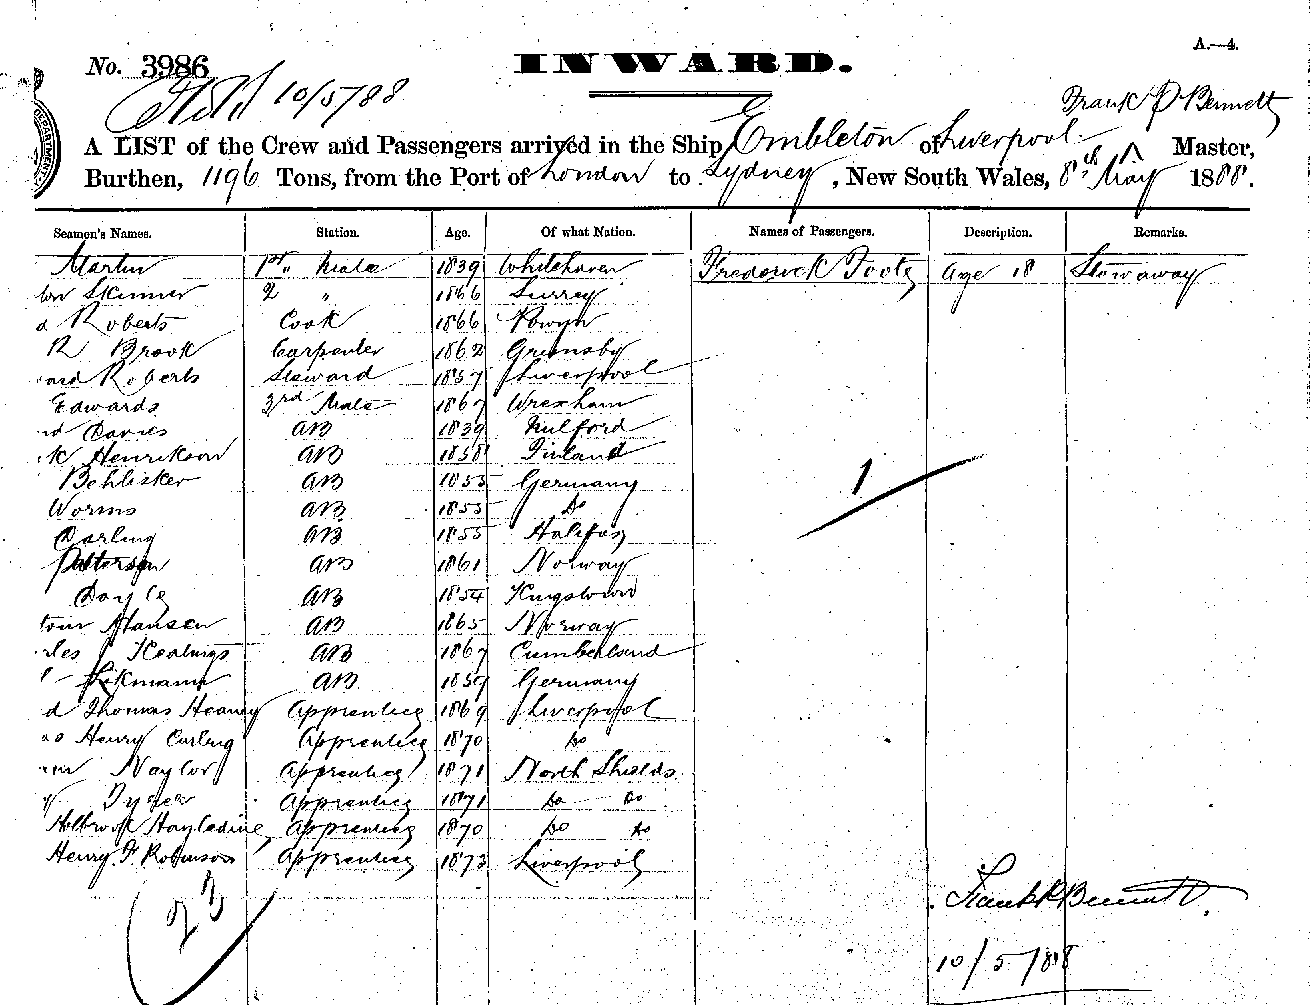 A.—4.
No. 3986
INWARD.
10/5/88
Frank P Bennett
A LIST of the Crew and Passengers arrived in the Ship Embleton of Liverpool Master,
Burthen, 1196 Tons, from the Port of London to Sydney, New South Wales, 8th May 1888.
Seamen's Names. Station. Age. Of what Nation. Names of Passengers. Description. Remarks.
Martin 1st " Mate 1839 Whitehaven Frederick Foote Age 18 Stowaway
Skinner 2 " 1866 Surrey
Roberts Cook 1866
R Brook Carpenter 1862 Grimsby
Roberts Steward 1857 Liverpool
Edwards 3rd Mate 1867 Wrexham
Davies AB 1839 Milford
Henrikson AB 1858 Finland
AB 1855 Germany
Worms AB 1855 Do
Darling AB 1855 Halifax
Patterson AB 1861 Norway
Doyle AB 1854 Kingstown
Hansen AB 1865 Norway
AB 1867 Cumberland
AB 1859 Germany
d Thomas Heaney Apprentice 1869 Liverpool
Henry Curling Apprentice 1870 Do
Naylor Apprentice 1871 North Shields
Apprentice 1871 Do Do
Holbrook Apprentice 1870 Do Do
Henry F. Robinson Apprentice 1873 Liverpool
1
23
Frank P Bennett
10/5/88